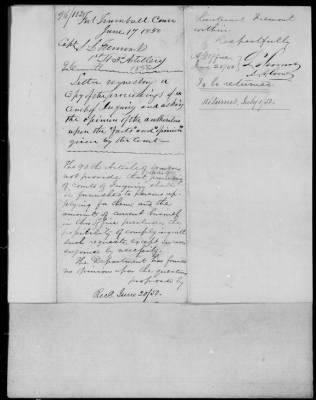 Fort Trumbull Conn
June 17 1850
Capt
1st Artillery
Letter requesting a
Copy of the proceedings of a
Court of Inquiry and asking
the opinion of the authorities
upon the "facts" and "opinion"
given by the Court
The 90th Article of
not provide that
of Courts of Inquiry shall
be furnished to persons ap-
plying for them, and the
amount of current business
in this office precludes the
possibility of complying with
such requests, except in cases
by necessity.
The Department has formed
no opinion upon the question
proposed by
Recd. June 20/50.
Lieutenant Fremont
within
Respectfully
A. G. Office
June 20/50
To be returned
Returned, July 1/50.